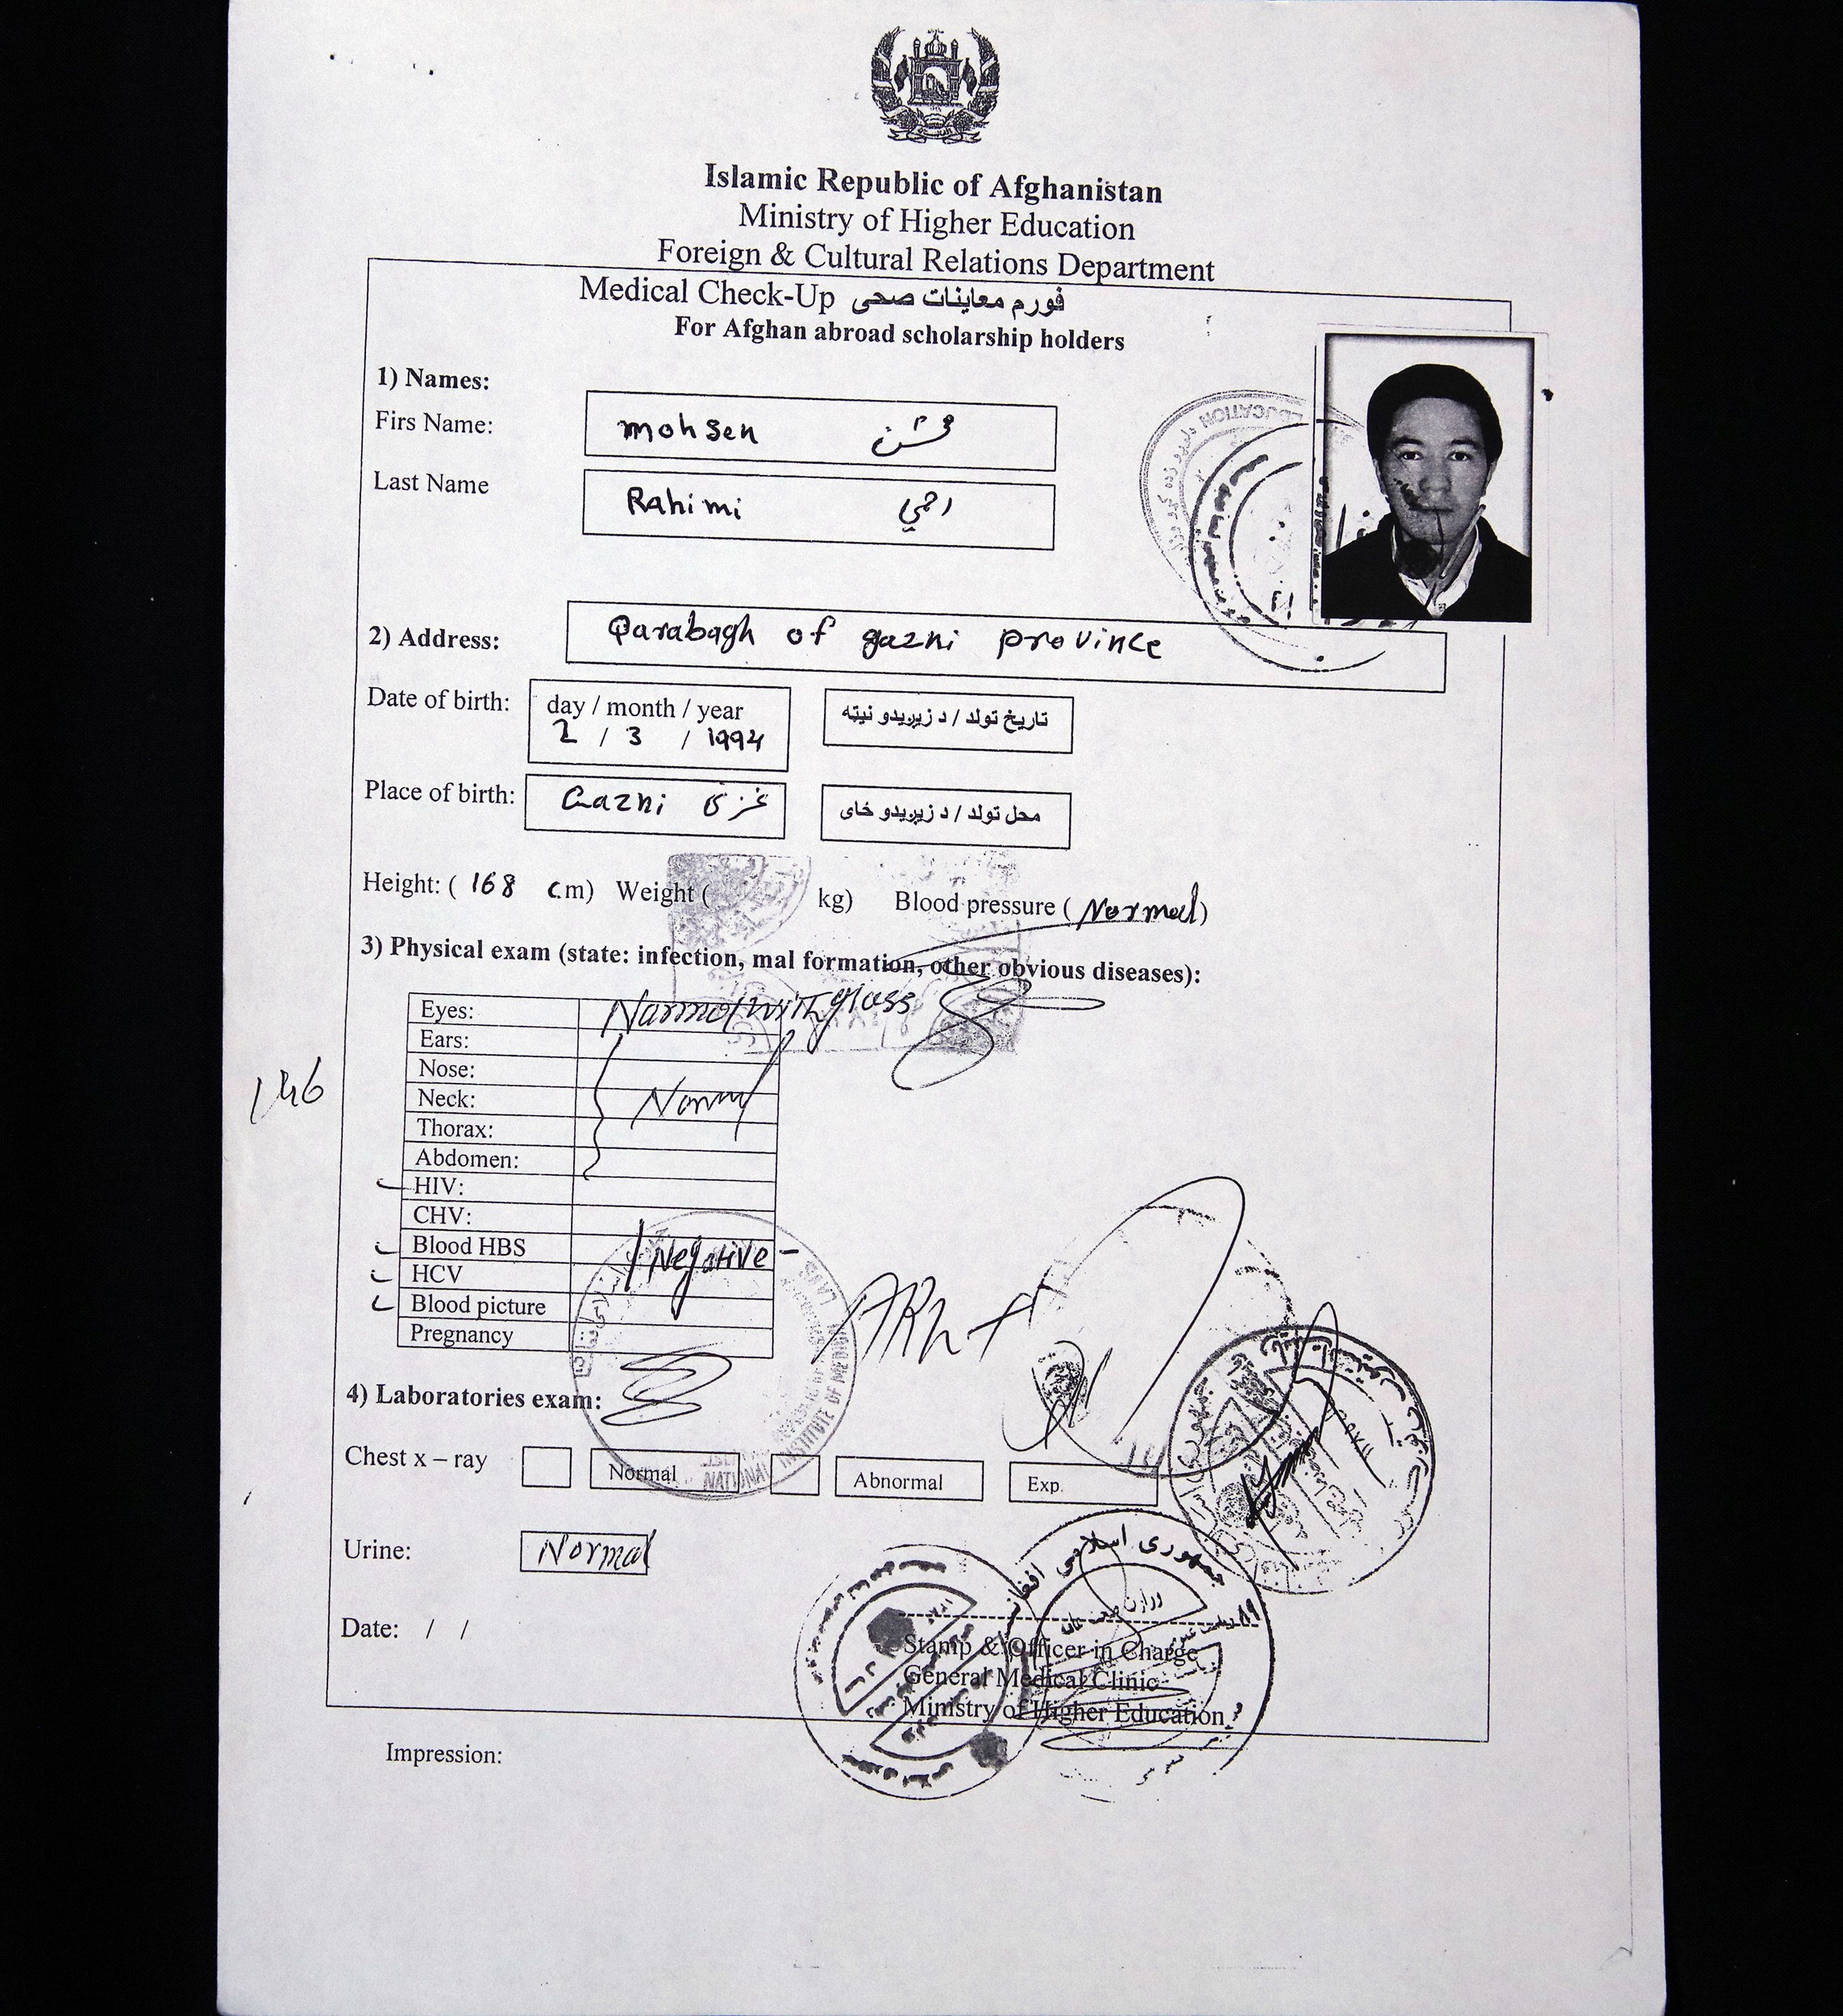 Islamic Republic of Afghanistan
Ministry of Higher Education
Foreign & Cultural Relations Department
Medical Check-Up فورم معاینات صحی
For Afghan abroad scholarship holders
1) Names:
Firs Name: mohsen محسن
Last Name Rahimi
2) Address: Qarabagh of gazni province
Date of birth: day / month / year تاریخ تولد / د زیږیدو نیټه
2 / 3 / 1994
Place of birth: Gazni غزنی محل تولد / د زیږیدو ځای
Height: ( 168 cm) Weight ( kg) Blood pressure ( Normal)
3) Physical exam (state: infection, mal formation, other obvious diseases):
Eyes: Normal with glass
Ears:
Nose:
146
Neck: Normal
Thorax:
Abdomen:
HIV:
CHV:
Blood HBS Negative
HCV
Blood picture
Pregnancy
4) Laboratories exam:
Chest x – ray Normal Abnormal Exp.
NATIONAL INSTITUTE OF
Urine: Normal
جمهوری اسلامی
Date: / /
Stamp & Officer in Charge
General Medical Clinic
Ministry of Higher Education
Impression:
EDUCATION